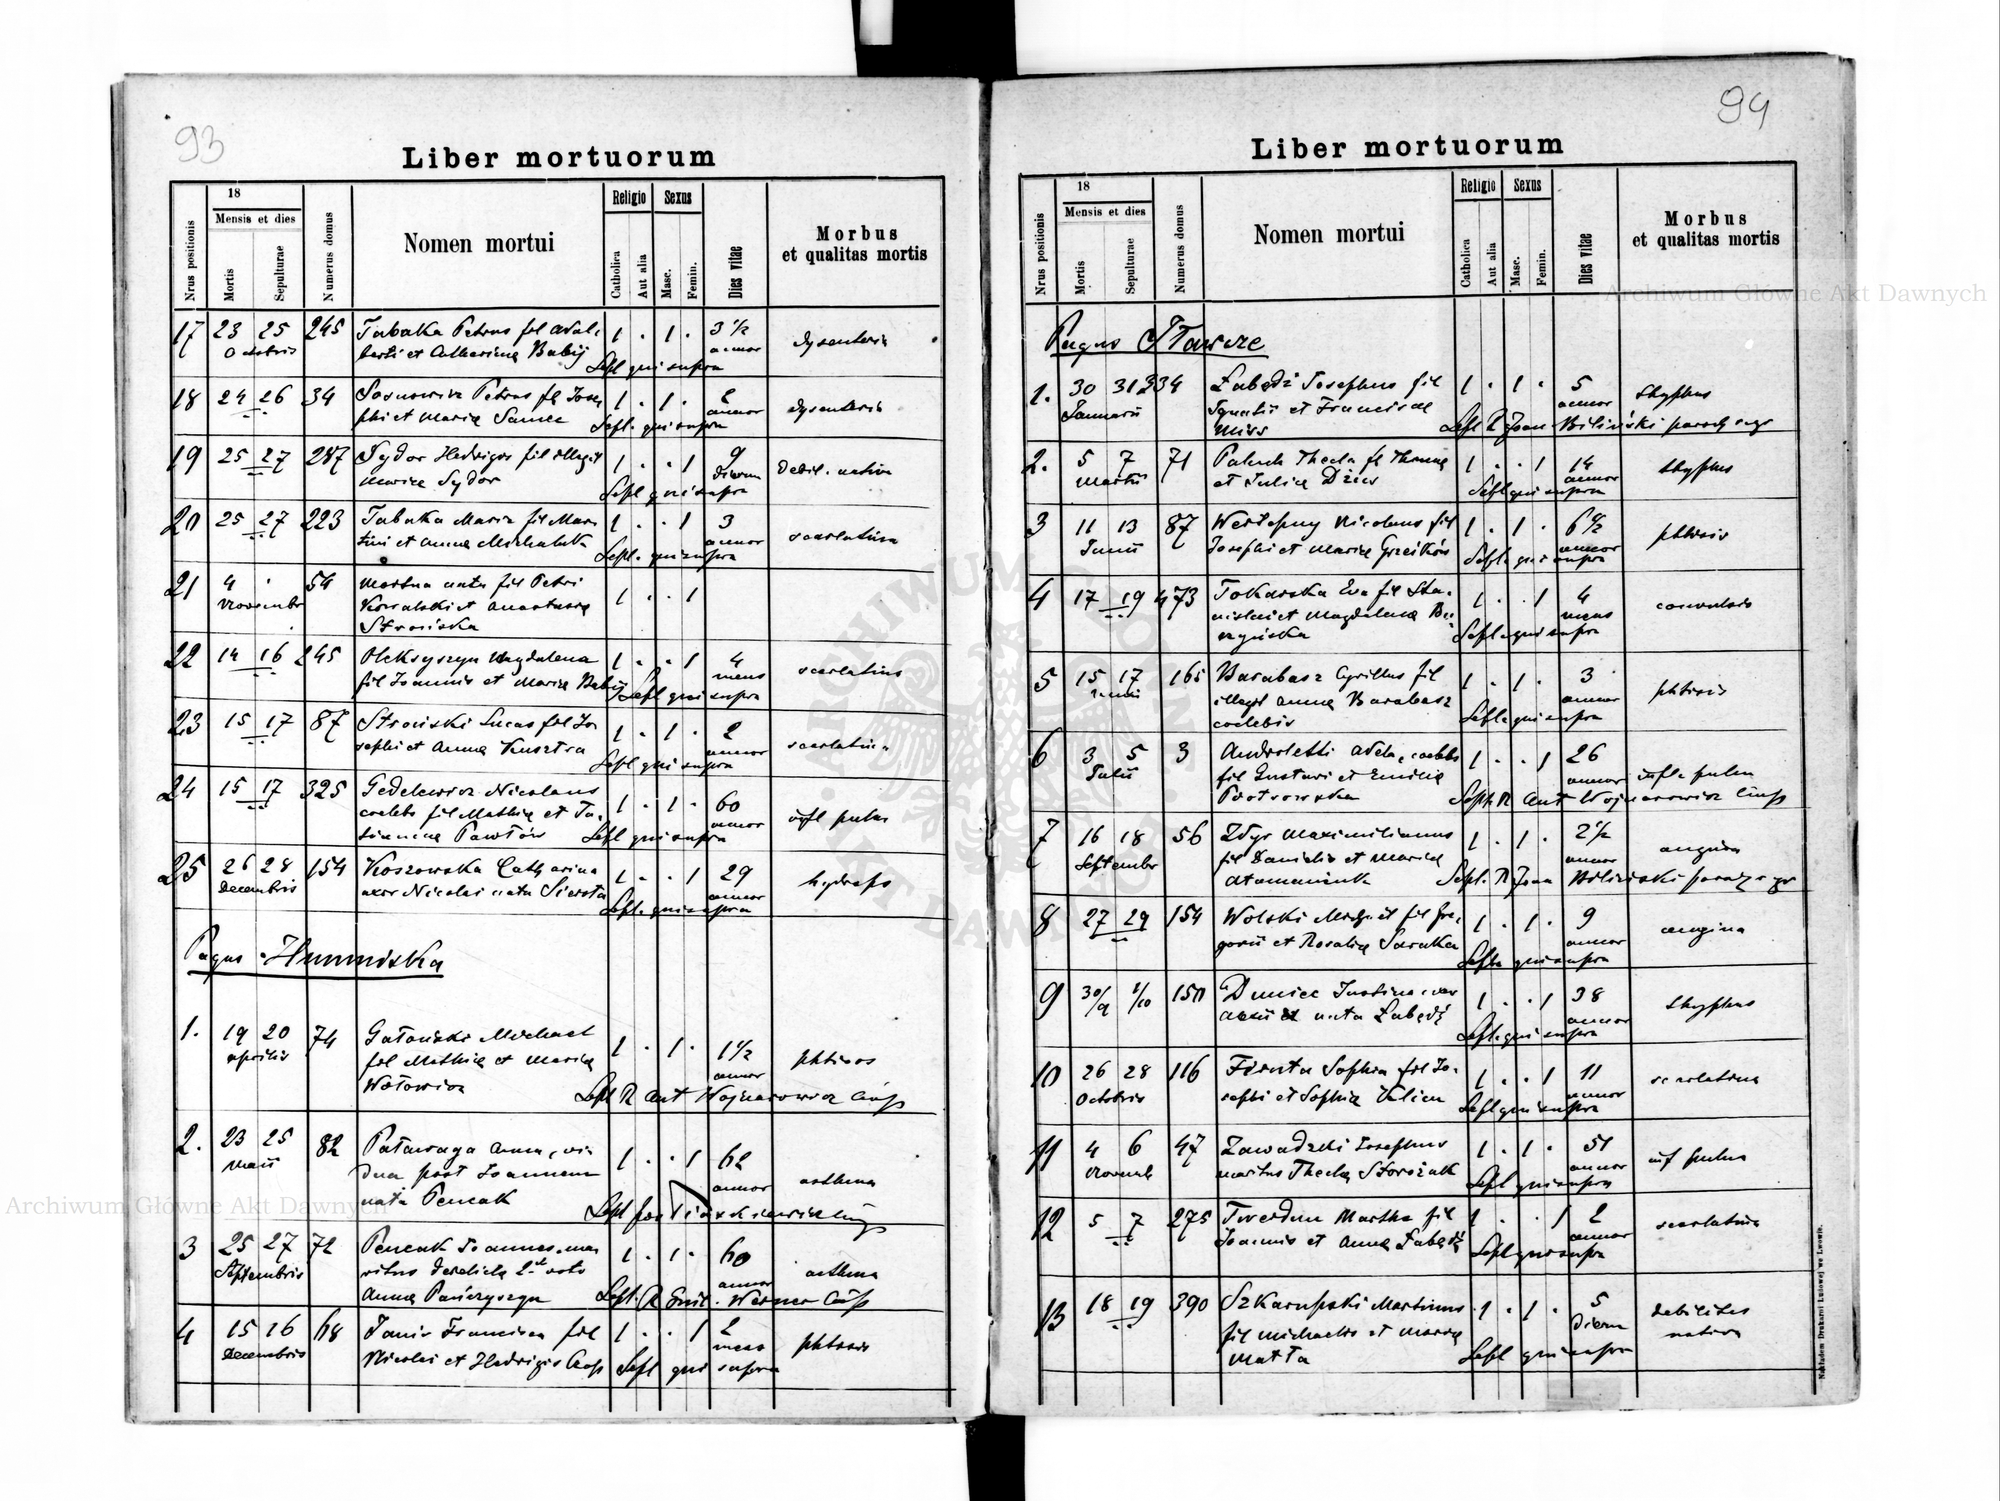 93
Liber mortuorum
Nrus positionis
18
Mensis et dies
Mortis
Sepulturae
Numerus domus
Nomen mortui
Religio
Catholica
Aut alia
Sexus
Masc.
Femin.
Dies vitae
Morbus
et qualitas mortis
17 23 25 245 Tabaka Petrus fil Adal- 1 . 1 . 3 1/2
Octobris berti et Catharinae Babij annor dysenteria
Sepl qui supra
18 24 26 34 Sosnowicz Petrus fil Jose 1 . 1 . 2
phi et Mariae Samee annor dysenteria
Sepl. qui supra
19 25 27 287 Sydor Hedvigis fil illegit 1 . . 1 9
Mariae Sydor dierum debil. nativa
Sepl qui supra
20 25 27 223 Tabaka Maria fil Mar- 1 . . 1 3
tini et Annae Michaluk annor scarlatina
Sepl. qui supra
21 4 . 54 Mortua nata fil Petri 1 . . 1
Novembr Kowalski et Anastasiae
Strońska
22 14 16 245 Oleksyszyn Magdalena 1 . . 1 4
fil Joannis et Mariae Babij mens scarlatina
Sepl qui supra
23 15 17 87 Stroński Lucas fil Jo 1 . 1 . 2
sephi et Annae Kusztra annor scarlatina
Sepl qui supra
24 15 17 325 Gedelewicz Nicolaus 1 . 1 . 60
coelebs fil Mathiae et Ta- annor infl pulm
Pawłów
Sepl qui supra
25 26 28 154 Koszowska Catharina 1 . . 1 29
Decembris uxor Nicolai nata Siersta annor hydrops
Sepl. qui supra
Pagus Humniska
1. 19 20 74 Gatoński Michael 1 . 1 . 1 1/2
Aprilis fil Mathiae et Mariae annor phtisis
Wołowicz
Sepl R Ant Wojnarowicz Coop
2. 23 25 82 Patawaga Anna, vi- 1 . . 1 62
Maii dua post Joannem annor asthma
nata Pencak
Sepl
3 25 27 72 Pencak Joannes, ma 1 . 1 . 60
Septembris ritus derelictae 2do voto annor asthma
Annae Pańczyszyn
Sepl. R Emil. Werner Coop
4 15 16 68 Janis Francisca fil 1 . . 1 2
Decembris Nicolai et Hedvigis mens phtisis
Sepl qui supra
94
Liber mortuorum
Nrus positionis
18
Mensis et dies
Mortis
Sepulturae
Numerus domus
Nomen mortui
Religio
Catholica
Aut alia
Sexus
Masc.
Femin.
Dies vitae
Morbus
et qualitas mortis
Pagus Stawcze
1. 30 31 334 Łabędź Josephus fil 1 . 1 . 5
Januarii Ignatii et Franciscae annor thyphus
Miss
Sepl R Joan Biliński paroch
2. 5 7 71 Paluch Thecla fil Thomae 1 . . 1 14
Martii et Juliae Dziew annor thyphus
Sepl qui supra
3 11 13 87 Wertepny Nicolaus fil 1 . 1 . 6 1/2
Junii Josephi et Mariae Grześków annor phtisis
Sepl qui supra
4 17 19 473 Tokarska Eva fil Sta- 1 . . 1 4
nislai et Magdalenae Bu- mens convulsio
rzyńska
Sepl qui supra
5 15 17 165 Barabasz Cyrillus fil 1 . 1 . 3
illegit Annae Barabasz annor phtisis
coelebis
Sepl qui supra
6 3 5 3 Androletti Adela, coelebs 1 . . 1 26
Julii fil Gustavi et Emiliae annor infl. pulm
Piotrowska
Sepl. R Ant Wojnarowicz Coop
7 16 18 56 Zdyr Maximilianus 1 . 1 . 2 1/2
Septembr fil Danielis et Mariae annor angina
Atamaniuk
Sepl. R Joan Biliński paroch
8 27 29 154 Wolski Michael fil Gre- 1 . 1 . 9
gorii et Rosaliae Saraka annor angina
Sepl qui supra
9 30/9 1/10 150 Duniec Justina uxor 1 . . 1 38
nata Łabędź annor thyphus
Sepl. qui supra
10 26 28 116 Firuta Sophia fil Jo- 1 . . 1 11
Octobris sephi et Sophiae annor scarlatina
Sepl qui supra
11 4 6 47 Zawadzki Josephus 1 . 1 . 51
Novemb maritus Theclae Storożak annor inf pulm
Sepl qui supra
12 5 7 275 Twerdun Martha fil 1 . . 1 2
Joannis et Annae Łabędź annor scarlatina
Sepl qui supra
13 18 19 390 Szkarupski Martinus 1 . 1 . 5
fil Michaelis et Mariae dierum debilitas
Matta nativa
Sepl qui supra
Nakładem Drukarni Ludowej we Lwowie.
Archiwum Główne Akt Dawnych
Archiwum Główne Akt Dawnych
ARCHIWUM GŁÓWNE AKT DAWNYCH